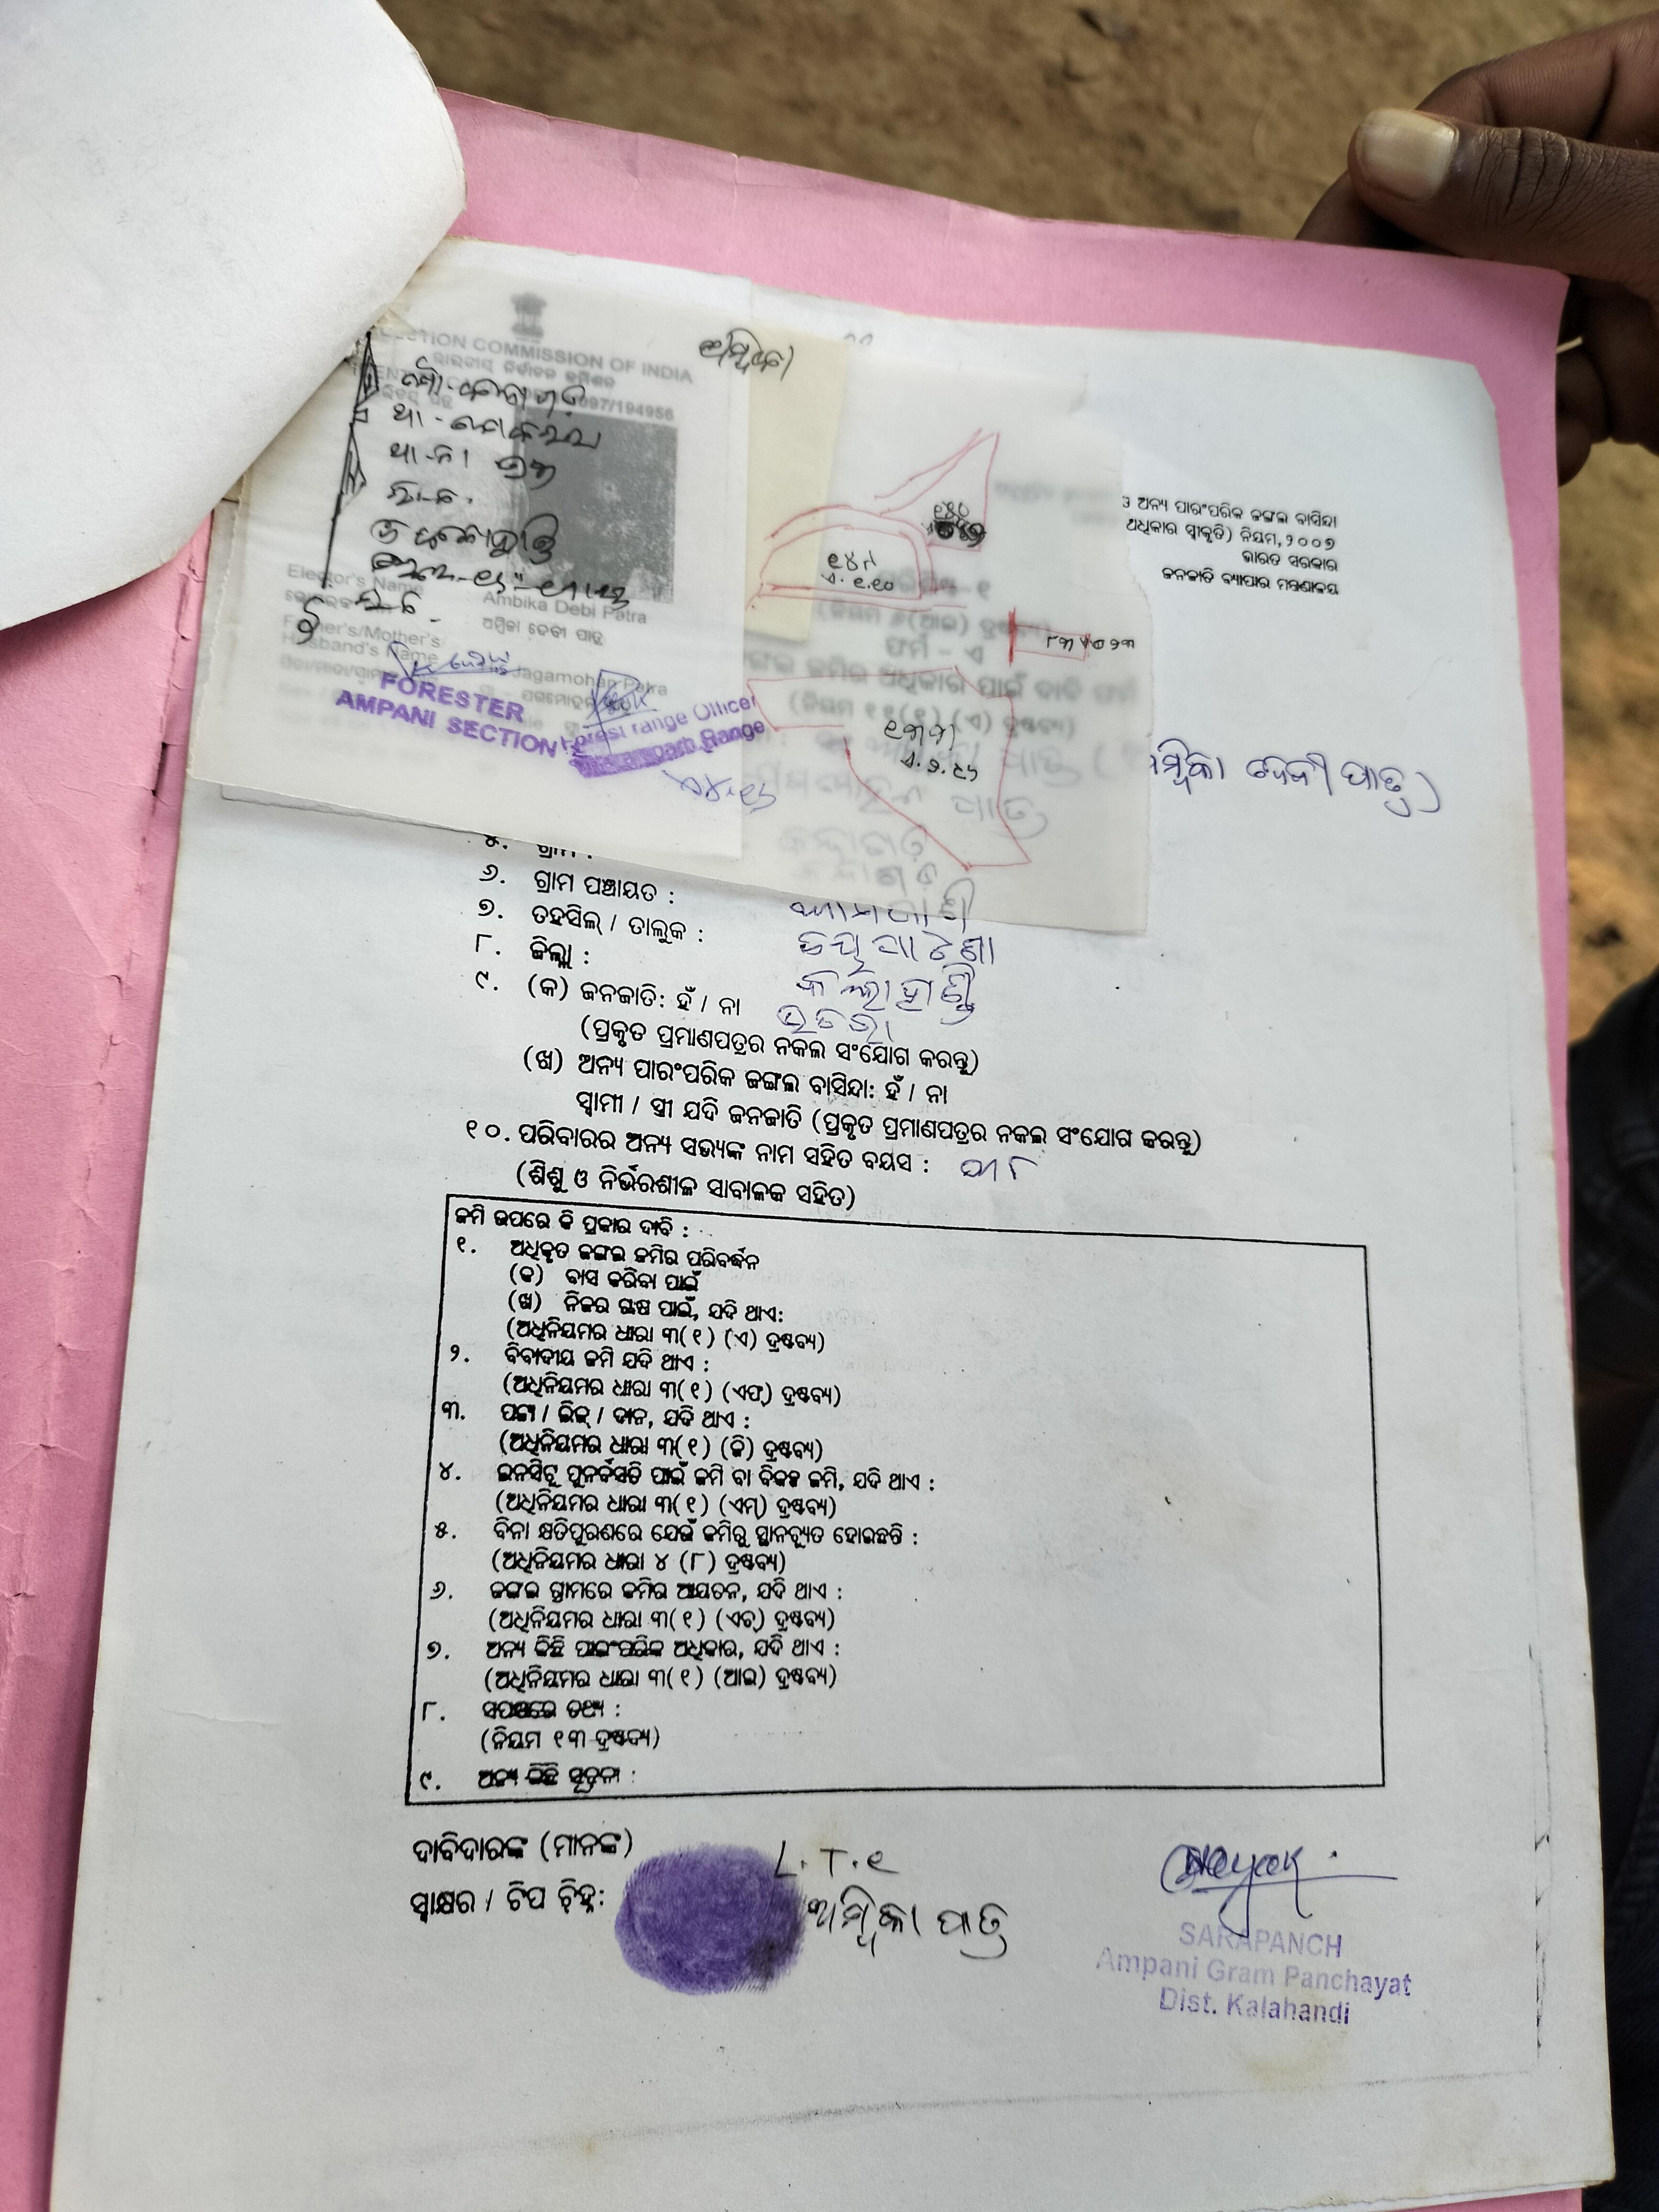 ELECTION COMMISSION OF INDIA
ଭାରତୀୟ ନିର୍ବାଚନ କମିଶନ
097/194956
ଅମ୍ବିକା
Elector's Name
Ambika Debi Patra
ଅମ୍ବିକା ଦେବୀ ପାତ୍ର
Father's/Mother's/
Husband's Name
Jagamohan Patra
FORESTER
AMPANI SECTION
Forest range Officer
Range
୧୪୯
ଏ. ୧.୧୦
୧୩୩
ଓ ଅନ୍ୟ ପାରଂପରିକ ଜଙ୍ଗଲ ବାସିନ୍ଦା
ଅଧିକାର ସ୍ୱୀକୃତି) ନିୟମ, ୨୦୦୭
ଭାରତ ସରକାର
ଜନଜାତି ବ୍ୟାପାର ମନ୍ତ୍ରଣାଳୟ
ଫର୍ମ - ଏ
ଜଙ୍ଗଲ ଜମିର ଅଧିକାର ପାଇଁ ଦାବି ଫର୍ମ
(ନିୟମ ୧୧(୧) (ଏ) ଦ୍ରଷ୍ଟବ୍ୟ)
ଅମ୍ବିକା ଦେବୀ ପାତ୍ର)
୫. ଗ୍ରାମ :
୬. ଗ୍ରାମ ପଞ୍ଚାୟତ :
୭. ତହସିଲ୍ / ତାଲୁକ : ଜୟପାଟଣା
୮. ଜିଲ୍ଲା : କଳାହାଣ୍ଡି
୯. (କ) ଜନଜାତି: ହଁ / ନା
(ପ୍ରକୃତ ପ୍ରମାଣପତ୍ରର ନକଲ ସଂଯୋଗ କରନ୍ତୁ)
(ଖ) ଅନ୍ୟ ପାରଂପରିକ ଜଙ୍ଗଲ ବାସିନ୍ଦା: ହଁ / ନା
ସ୍ୱାମୀ / ସ୍ତ୍ରୀ ଯଦି ଜନଜାତି (ପ୍ରକୃତ ପ୍ରମାଣପତ୍ରର ନକଲ ସଂଯୋଗ କରନ୍ତୁ)
୧୦. ପରିବାରର ଅନ୍ୟ ସଭ୍ୟଙ୍କ ନାମ ସହିତ ବୟସ :
(ଶିଶୁ ଓ ନିର୍ଭରଶୀଳ ସାବାଳକ ସହିତ)
ଜମି ଉପରେ କି ପ୍ରକାର ଦାବି :
୧. ଅଧିକୃତ ଜଙ୍ଗଲ ଜମିର ପରିବର୍ଦ୍ଧନ
(କ) ବାସ କରିବା ପାଇଁ
(ଖ) ନିଜର ଚାଷ ପାଇଁ, ଯଦି ଥାଏ:
(ଅଧିନିୟମର ଧାରା ୩(୧) (ଏ) ଦ୍ରଷ୍ଟବ୍ୟ)
୨. ବିବାଦୀୟ ଜମି ଯଦି ଥାଏ :
(ଅଧିନିୟମର ଧାରା ୩(୧) (ଏଫ୍) ଦ୍ରଷ୍ଟବ୍ୟ)
୩. ପଟ୍ଟା / ଲିଜ୍ / ଦାନ, ଯଦି ଥାଏ :
(ଅଧିନିୟମର ଧାରା ୩(୧) (ଜି) ଦ୍ରଷ୍ଟବ୍ୟ)
୪. ଇନସିଟୁ ପୁନର୍ବସତି ପାଇଁ ଜମି ବା ବିକଳ୍ପ ଜମି, ଯଦି ଥାଏ :
(ଅଧିନିୟମର ଧାରା ୩(୧) (ଏମ୍) ଦ୍ରଷ୍ଟବ୍ୟ)
୫. ବିନା କ୍ଷତିପୂରଣରେ ଯେଉଁ ଜମିରୁ ସ୍ଥାନଚ୍ୟୁତ ହୋଇଛନ୍ତି :
(ଅଧିନିୟମର ଧାରା ୪ (୮) ଦ୍ରଷ୍ଟବ୍ୟ)
୬. ଜଙ୍ଗଲ ଗ୍ରାମରେ ଜମିର ଆୟତନ, ଯଦି ଥାଏ :
(ଅଧିନିୟମର ଧାରା ୩(୧) (ଏଚ୍) ଦ୍ରଷ୍ଟବ୍ୟ)
୭. ଅନ୍ୟ କିଛି ପାରଂପରିକ ଅଧିକାର, ଯଦି ଥାଏ :
(ଅଧିନିୟମର ଧାରା ୩(୧) (ଆଇ) ଦ୍ରଷ୍ଟବ୍ୟ)
୮. ସପକ୍ଷରେ ତଥ୍ୟ :
(ନିୟମ ୧୩ ଦ୍ରଷ୍ଟବ୍ୟ)
୯. ଅନ୍ୟ କିଛି ସୂଚନା :
ଦାବିଦାରଙ୍କ (ମାନଙ୍କ)
ସ୍ୱାକ୍ଷର / ଟିପ ଚିହ୍ନ:
L. T. ୧
ଅମ୍ବିକା ପାତ୍ର
Nayak
SARAPANCH
Ampani Gram Panchayat
Dist. Kalahandi